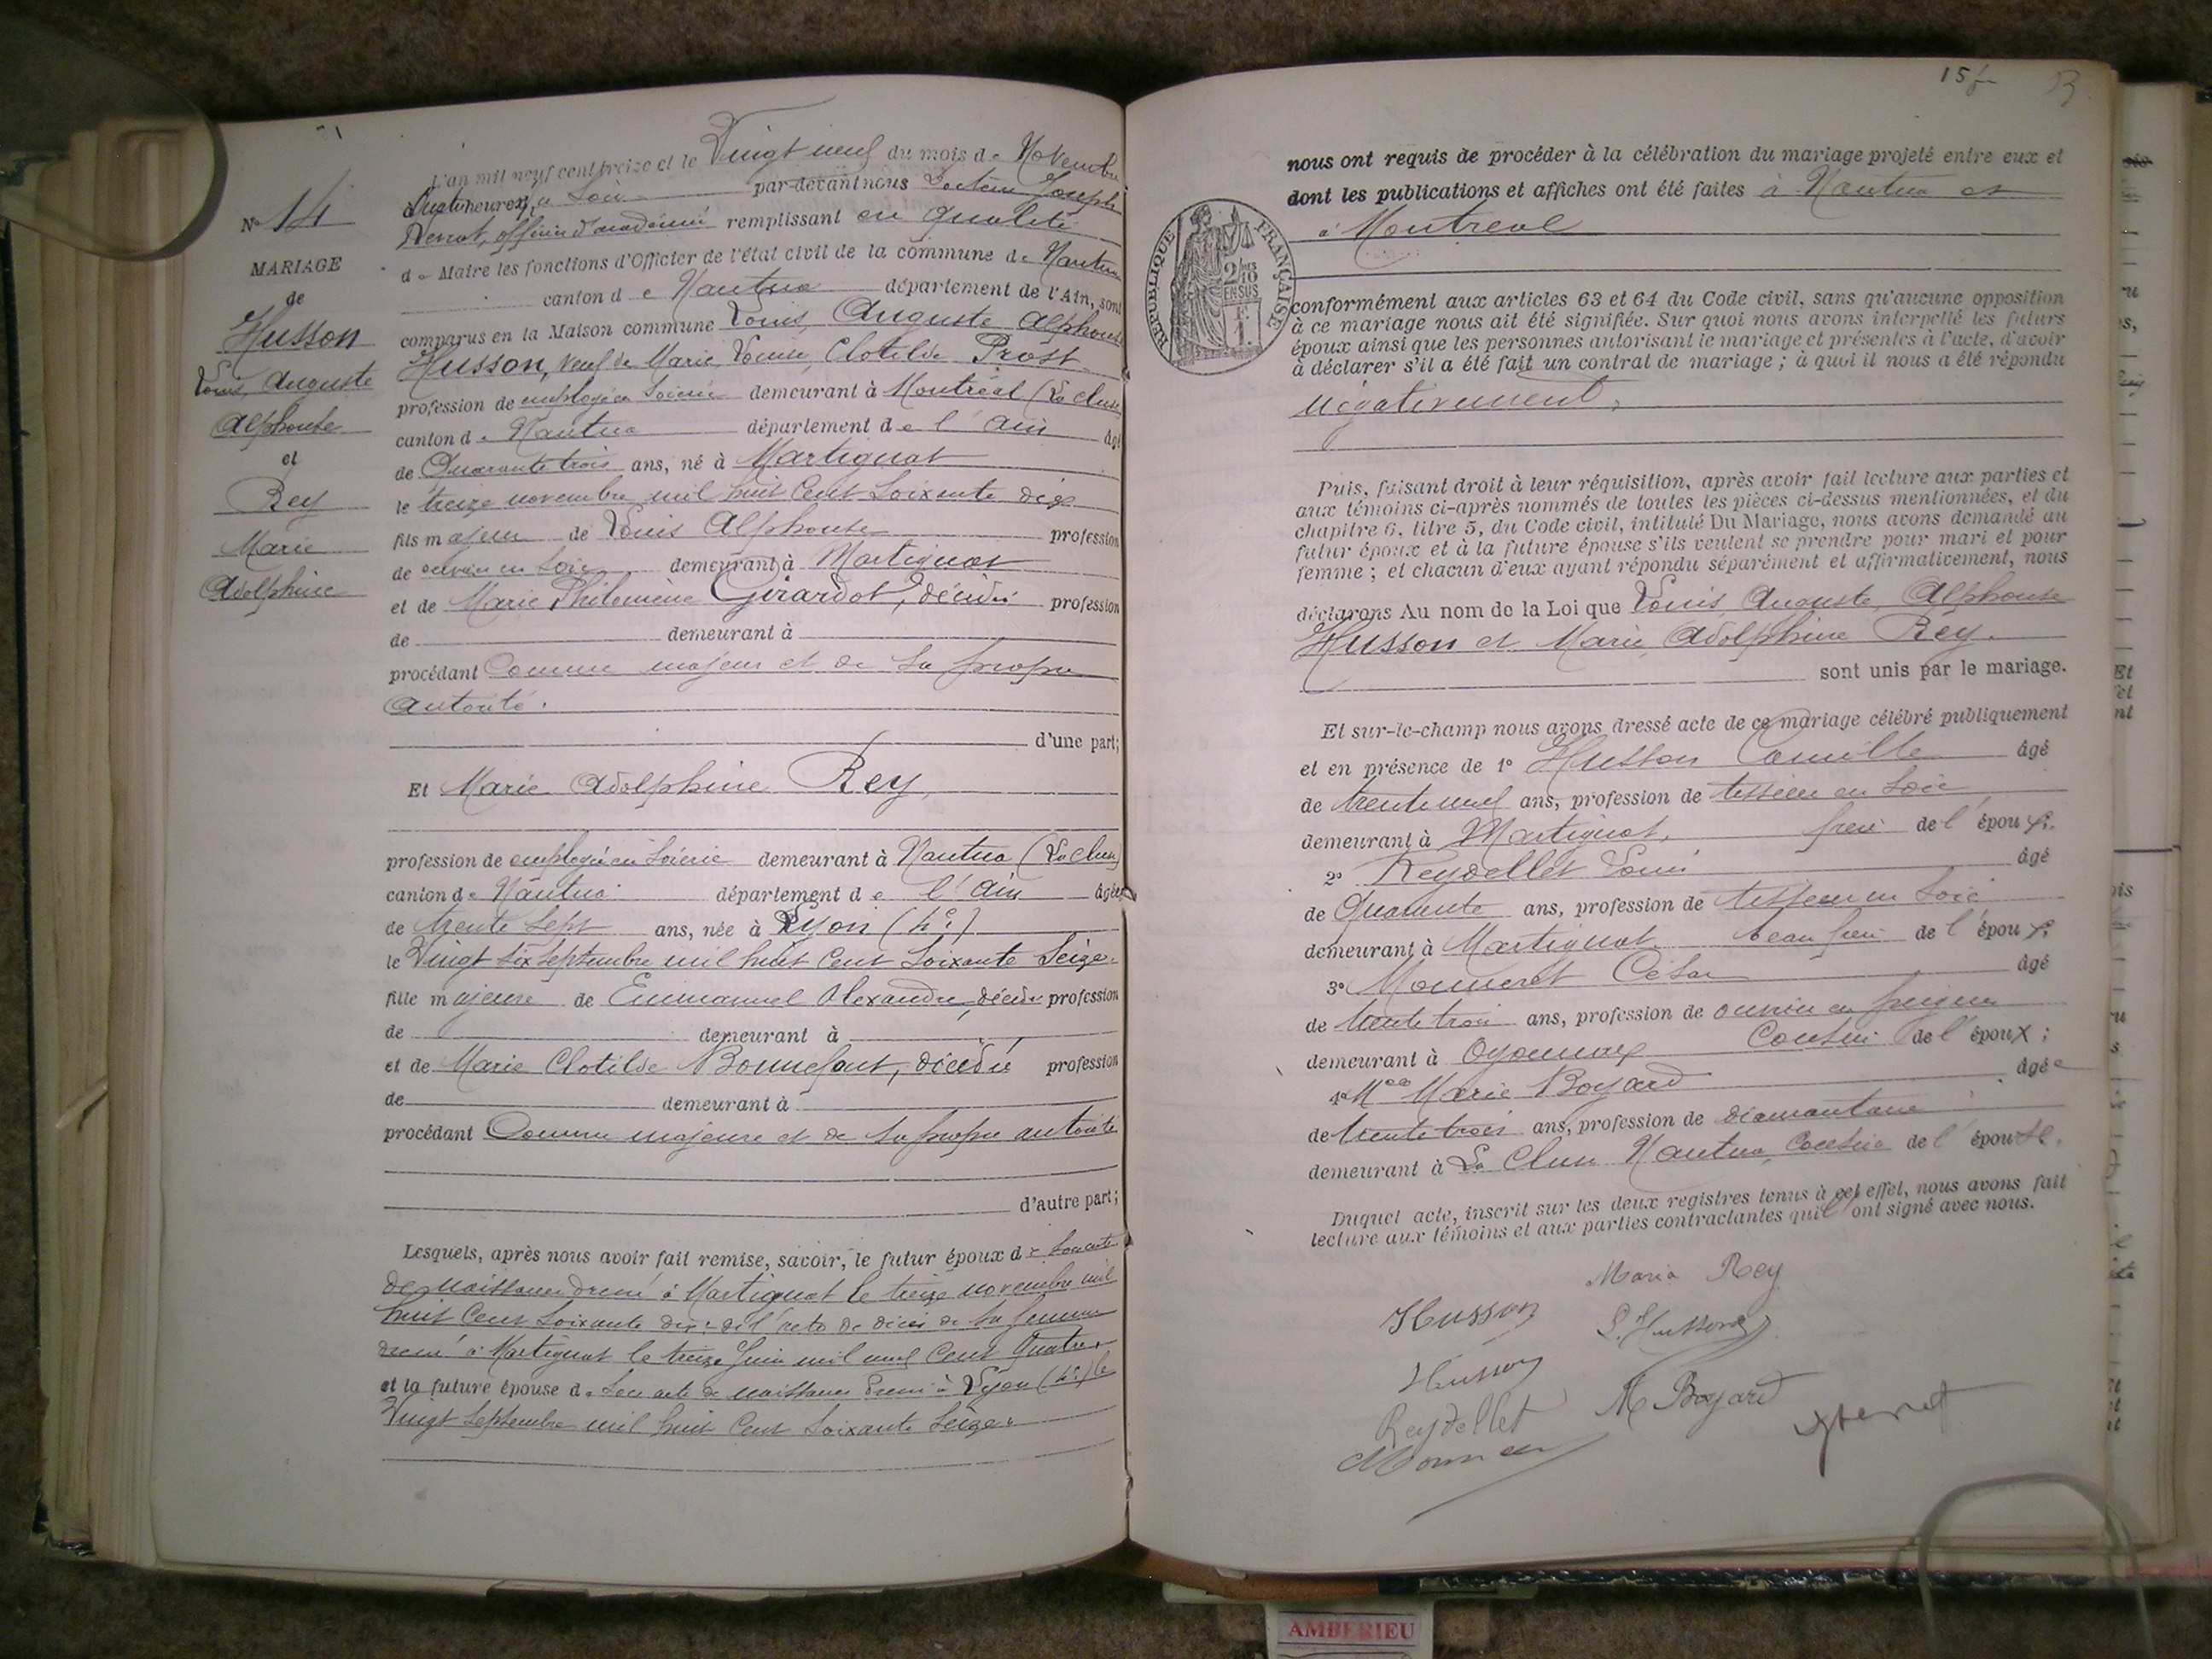 N° 14
MARIAGE
de
Husson
Louis, Auguste
Alphonse
et
Rey
Marie
Adolphine
L'an mil neuf cent treize et le Vingt neuf du mois de Novembre
à heures, du Soir par-devant nous Docteur Joseph
officier d'académie remplissant en qualité
de Maire les fonctions d'Officier de l'état civil de la commune de Nantua
canton de Nantua département de l'Ain, sont
comparus en la Maison commune Louis, Auguste Alphonse
Husson, veuf de Marie, Louise, Clotilde Prost
profession de employé en Soierie demeurant à Montréal (La Cluse
canton de Nantua département de l'Ain âgé
de Quarante trois ans, né à Martignat
le treize novembre mil huit Cent Soixante dix
fils majeur de Louis Alphonse profession
de ouvrier en Soie demeurant à Martignat
et de Marie Philomène Girardot, décédée profession
de demeurant à
procédant Comme majeur et de Sa propre
Autorité.
d'une part;
Et Marie Adolphine Rey,
profession de employée en Soierie demeurant à Nantua (La Cluse)
canton de Nantua département de l'Ain âgée
de trente Sept ans, née à Lyon (4e)
le Vingt Six Septembre mil huit Cent Soixante Seize
fille majeure de Emmanuel Alexandre, décédé profession
de demeurant à
et de Marie Clotilde Bonnefant, décédée profession
de demeurant à
procédant Comme majeure et de Sa propre autorité
d'autre part;
Lesquels, après nous avoir fait remise, savoir, le futur époux de Son acte
de naissance dressé à Martignat le treize novembre mil
huit Cent Soixante dix: de l'acte de décès de Sa femme
dressé à Martignat le treize Juin mil neuf Cent Quatre
et la future épouse de Son acte de naissance dressé à Lyon (4e) le
Vingt Septembre mil huit Cent Soixante Seize
15
nous ont requis de procéder à la célébration du mariage projeté entre eux et
dont les publications et affiches ont été faites à Nantua et
à Montreal
RÉPUBLIQUE FRANÇAISE
2/10 EN SUS
1 F.
conformément aux articles 63 et 64 du Code civil, sans qu'aucune opposition
à ce mariage nous ait été signifiée. Sur quoi nous avons interpellé les futurs
époux ainsi que les personnes autorisant le mariage et présentes à l'acte, d'avoir
à déclarer s'il a été fait un contrat de mariage; à quoi il nous a été répondu
négativement,
Puis, faisant droit à leur réquisition, après avoir fait lecture aux parties et
aux témoins ci-après nommés de toutes les pièces ci-dessus mentionnées, et du
chapitre 6, titre 5, du Code civil, intitulé Du Mariage, nous avons demandé au
futur époux et à la future épouse s'ils veulent se prendre pour mari et pour
femme; et chacun d'eux ayant répondu séparément et affirmativement, nous
déclarons Au nom de la Loi que Louis, Auguste, Alphonse
Husson et Marie, Adolphine Rey.
sont unis par le mariage.
Et sur-le-champ nous avons dressé acte de ce mariage célébré publiquement
et en présence de 1° Husson Camille âgé
de trente neuf ans, profession de tisseur en Soie
demeurant à Martignat, frère de l'époux.
2° Reydellet Louis âgé
de Quarante ans, profession de tisseur en Soie
demeurant à Martignat beau frère de l'époux.
3° Monneret César âgé
de trente trois ans, profession de ouvrier en peignes
demeurant à Oyonnax Cousin de l'époux;
4° Marie Boyard âgée
de trente trois ans, profession de diamantaire
demeurant à La Cluse Nantua, Cousine de l'épouse.
Duquel acte, inscrit sur les deux registres tenus à cet effet, nous avons fait
lecture aux témoins et aux parties contractantes qui ont signé avec nous.
Maria Rey
Husson
L. Husson
Husson
Reydellet
M Boyard
AMBERIEU